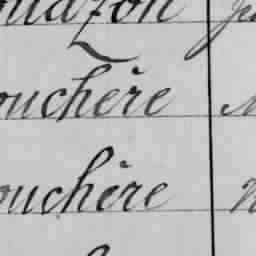 ouazon
ouchère
ouchère